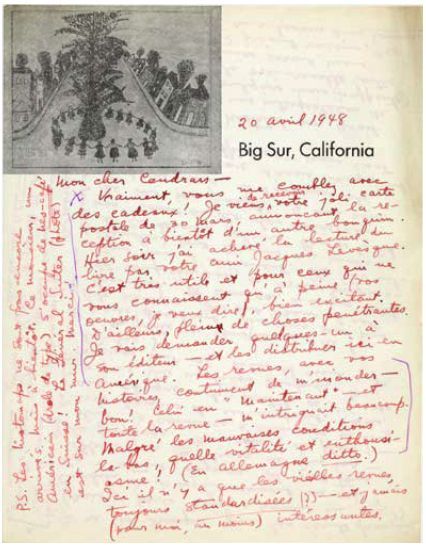 20 avril 1948
Big Sur, California
Mon cher Cendrars —
Vraiment, vous me comblez avec
des cadeaux! Je viens de recevoir votre joli carte
postale de 30 mars, annonçant la ré-
ception à bientôt d'un autre bouquin.
Hier soir j'ai achevé la lecture du
livre par votre ami Jacques Levesque.
C'est très utile et pour ceux qui ne
vous connaissent qu'à peine, (vos
oeuvres, je veux dire), bien excitant.
D'ailleurs, pleine de choses pénétrantes.
Je vais demander quelques-uns à
son éditeur — et les distribuer ici en
Amérique. Les revues, avec vos
histoires, continuent de m'inonder —
bon! Celui en "Maintenant" — et
toute la revue — m'intriguait beaucoup.
Malgré les mauvaises conditions
là-bas, quelle vitalité et enthousi-
asme! (En allemagne ditto.)
Ici il n'y a que les vieilles revues,
toujours standardisées (??) — et jamais
(pour moi, au moins) intéressantes.
P.S. Les histamps ne sont pas encore
arrivés, mais à bientôt. Ce monsieur, un
Américain (drôle de type)
en Suisse! Le Général Sutter (photo)
est sur mon mur